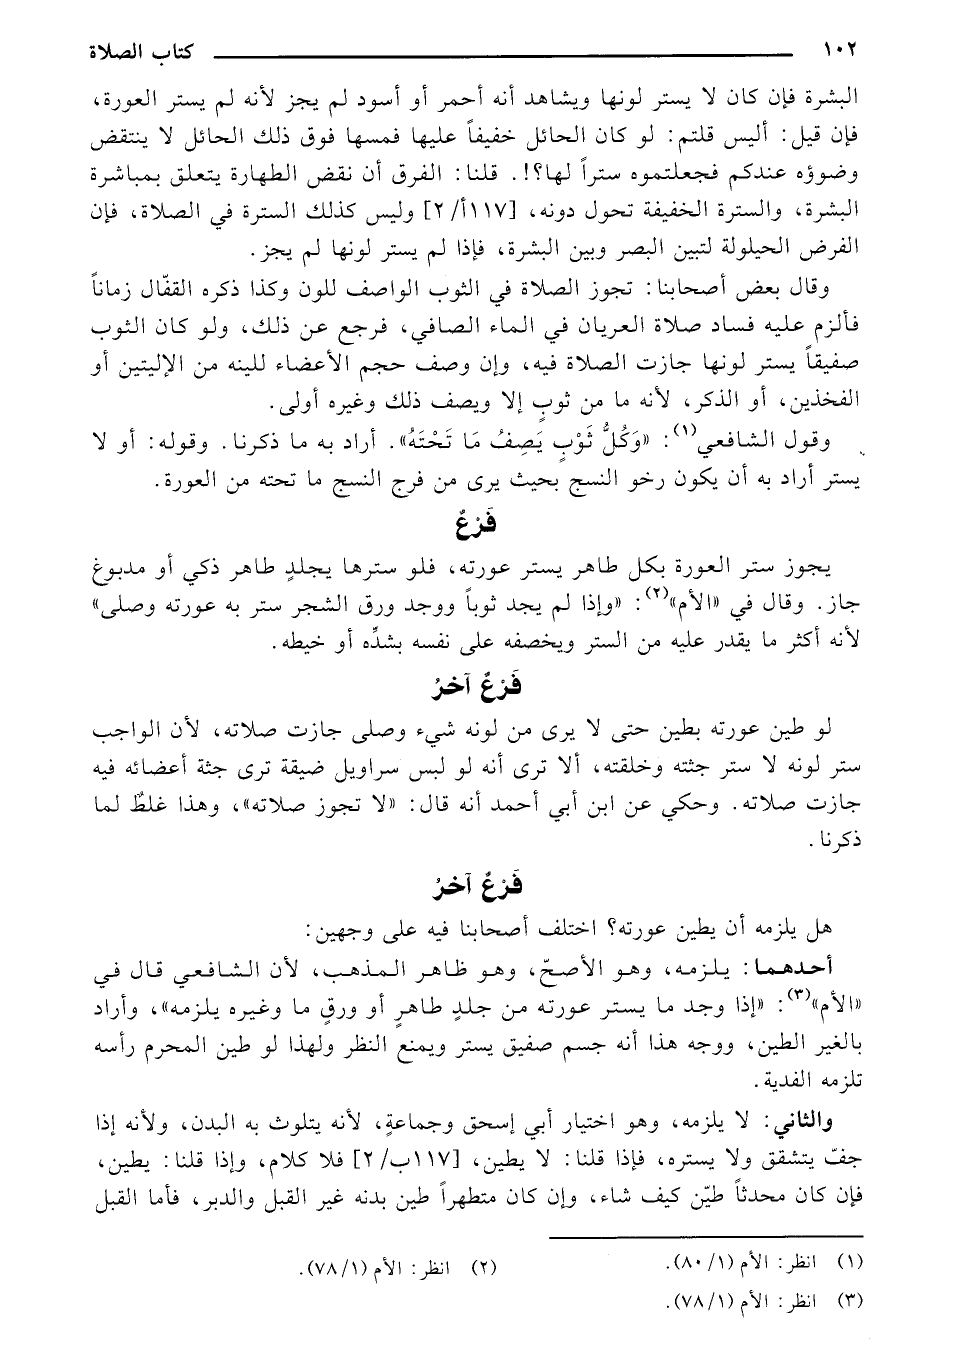 ١٠٢ كتاب الصلاة
البشرة فإن كان لا يستر لونها ويشاهد أنه أحمر أو أسود لم يجز لأنه لم يستر العورة،
فإن قيل: أليس قلتم: لو كان الحائل خفيفاً عليها فمسها فوق ذلك الحائل لا ينتقض
وضوؤه عندكم فجعلتموه ستراً لها؟!. قلنا: الفرق أن نقض الطهارة يتعلق بمباشرة
البشرة، والسترة الخفيفة تحول دونه، [١١٧أ/ ٢] وليس كذلك السترة في الصلاة، فإن
الفرض الحيلولة لتبين البصر وبين البشرة، فإذا لم يستر لونها لم يجز.
وقال بعض أصحابنا: تجوز الصلاة في الثوب الواصف للون وكذا ذكره القفّال زماناً
فألزم عليه فساد صلاة العريان في الماء الصافي، فرجع عن ذلك، ولو كان الثوب
صفيقاً يستر لونها جازت الصلاة فيه، وإن وصف حجم الأعضاء للينه من الإليتين أو
الفخذين، أو الذكر، لأنه ما من ثوبٍ إلا ويصف ذلك وغيره أولى.
وقول الشافعي(١): «وَكُلُّ ثَوْبٍ يَصِفُ مَا تَحْتَهُ». أراد به ما ذكرنا. وقوله: أو لا
يستر أراد به أن يكون رخو النسج بحيث يرى من فرج النسج ما تحته من العورة.
فَرْعٌ
يجوز ستر العورة بكل طاهر يستر عورته، فلو سترها يجلدٍ طاهر ذكي أو مدبوغ
جاز. وقال في «الأم»(٢): «وإذا لم يجد ثوباً ووجد ورق الشجر ستر به عورته وصلى»
لأنه أكثر ما يقدر عليه من الستر ويخصفه على نفسه بشدِّه أو خيطه.
فَرْعٌ آخرُ
لو طين عورته بطين حتى لا يرى من لونه شيء وصلى جازت صلاته، لأن الواجب
ستر لونه لا ستر جثته وخلقته، ألا ترى أنه لو لبس سراويل ضيقة ترى جثة أعضائه فيه
جازت صلاته. وحكي عن ابن أبي أحمد أنه قال: «لا تجوز صلاته»، وهذا غلطٌ لما
ذكرنا.
فَرْعٌ آخرُ
هل يلزمه أن يطين عورته؟ اختلف أصحابنا فيه على وجهين:
أحدهما: يلزمه، وهو الأصحّ، وهو ظاهر المذهب، لأن الشافعي قال في
«الأم»(٣): «إذا وجد ما يستر عورته من جلدٍ طاهرٍ أو ورقٍ ما وغيره يلزمه»، وأراد
بالغير الطين، ووجه هذا أنه جسم صفيق يستر ويمنع النظر ولهذا لو طين المحرم رأسه
تلزمه الفدية.
والثاني: لا يلزمه، وهو اختيار أبي إسحق وجماعةٍ، لأنه يتلوث به البدن، ولأنه إذا
جفّ يتشقق ولا يستره، فإذا قلنا: لا يطين، [١١٧ب/ ٢] فلا كلام، وإذا قلنا: يطين،
فإن كان محدثاً طيّن كيف شاء، وإن كان متطهراً طين بدنه غير القبل والدبر، فأما القبل
(١) انظر: الأم (١/ ٨٠). (٢) انظر: الأم (١/ ٧٨).
(٣) انظر: الأم (١/ ٧٨).